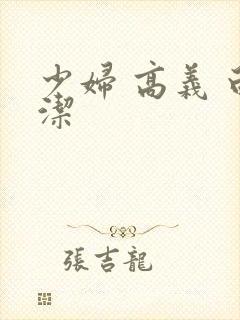 少婦 高義
潔
張吉龍